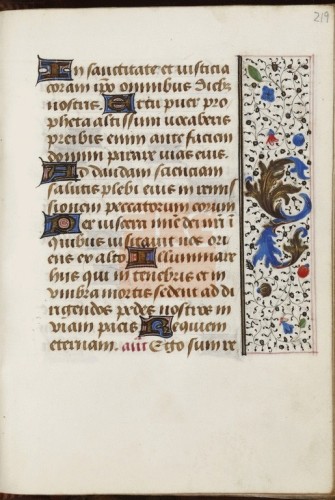 219
In sanctitate et iusticia
coram ipo omnibus dieb3
nostris. Et tu puer pro
pheta altissimi vocaberis
preibis enim ante faciem
domini parare vias eius.
Ad dandam scienciam
salutis plebi eius in remis
sionem peccatorum eorum
Per viscera mie dei nri i
quibus visitavit nos ori
ens ex alto Illuminare
hiis qui in tenebris et in
umbra mortis sedent ad di
rigendos pedes nostros in
viam pacis Requiem
eternam. an Ego sum re